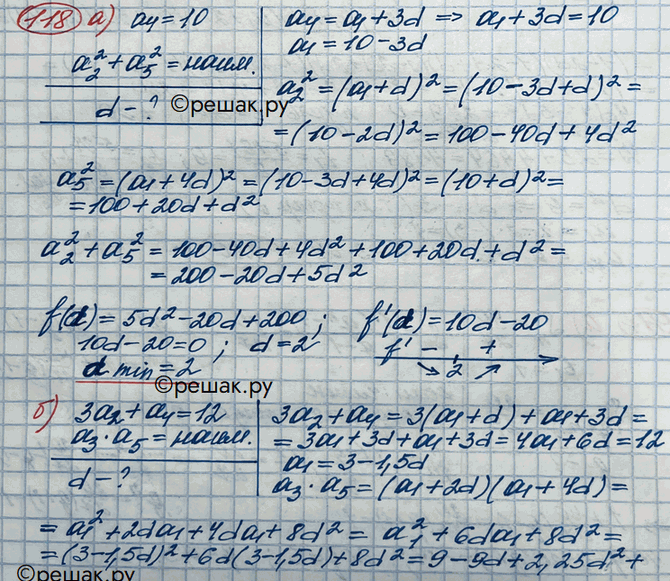 118 а) a₄ = 10
a₂² + a₅² = наим.
d - ? ©решак.ру
a₄ = a₁ + 3d => a₁ + 3d = 10
a₁ = 10 - 3d
a₂² = (a₁ + d)² = (10 - 3d + d)² =
= (10 - 2d)² = 100 - 40d + 4d²
a₅² = (a₁ + 4d)² = (10 - 3d + 4d)² = (10 + d)² =
= 100 + 20d + d²
a₂² + a₅² = 100 - 40d + 4d² + 100 + 20d + d² =
= 200 - 20d + 5d²
f(d) = 5d² - 20d + 200 ; f'(d) = 10d - 20
10d - 20 = 0 ; d = 2 f' - +
d min = 2 ↘ 2 ↗
©решак.ру
б) 3a₂ + a₄ = 12
a₃ · a₅ = наим.
d - ?
3a₂ + a₄ = 3(a₁ + d) + a₁ + 3d =
= 3a₁ + 3d + a₁ + 3d = 4a₁ + 6d = 12
a₁ = 3 - 1,5d
a₃ · a₅ = (a₁ + 2d)(a₁ + 4d) =
= a₁² + 2da₁ + 4da₁ + 8d² = a₁² + 6da₁ + 8d² =
= (3 - 1,5d)² + 6d(3 - 1,5d) + 8d² = 9 - 9d + 2,25d² +
©решак.ру